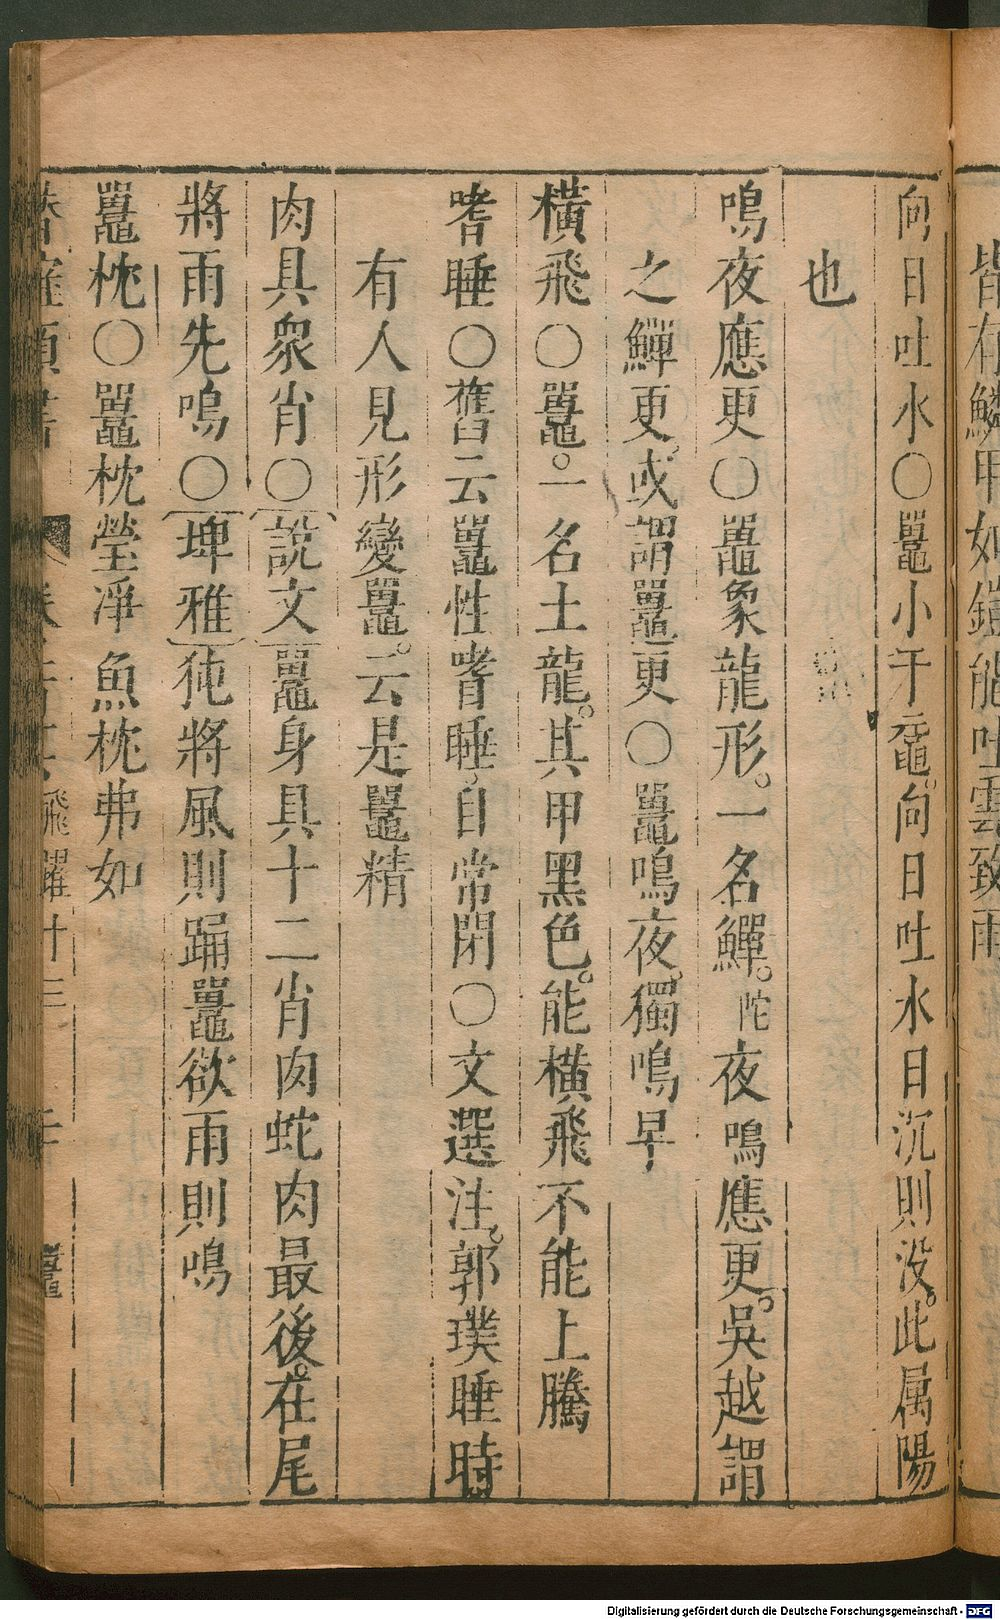 皆有鱗甲如鎧能吐雲致雨
向日吐水〇鼉小于黿。向日吐水日沉則没。此属陽
也
鳴夜應更〇鼉象龍形。一名鱓。陀夜鳴應更。吳越謂
之鱓更。或謂鼉更〇鼉鳴夜。獨鳴早
橫飛〇鼉。一名土龍。其甲黑色。能橫飛不能上騰
嗜睡〇舊云鼉性嗜睡。目常閉〇文選注。郭璞睡時
有人見形變鼉。云是鼉精
肉具衆肖〇說文鼉身具十二肖肉蛇肉最後。在尾
將雨先鳴〇埤雅㹠將風則踊鼉欲雨則鳴
鼉枕〇鼉枕瑩凈魚枕弗如
飛躍廾三
鼉
Digitalisierung gefördert durch die Deutsche Forschungsgemeinschaft - DFG